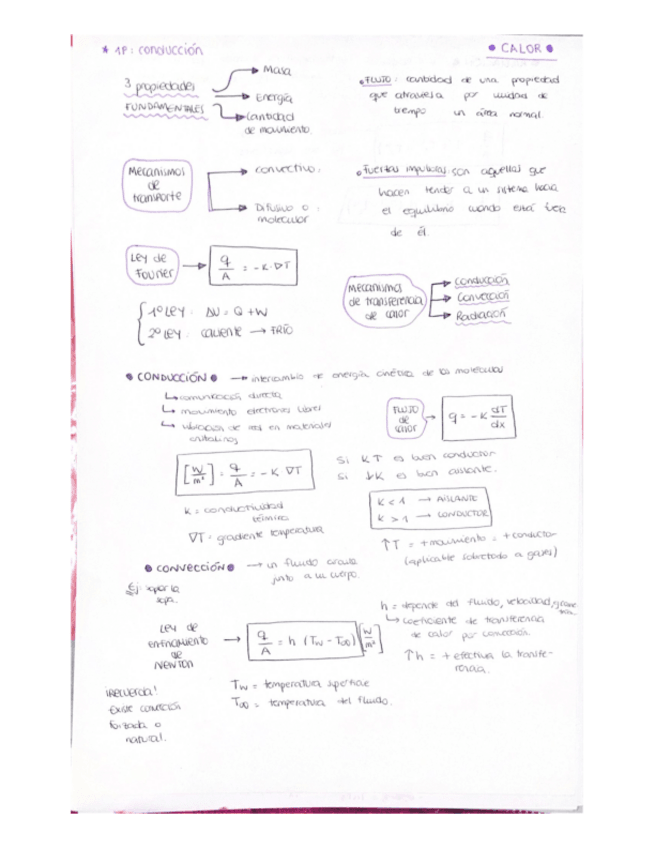 * 1P: conducción
• CALOR •
3 propiedades
FUNDAMENTALES
→ Masa
→ Energía
→ Cantidad
de movimiento.
• FLUJO: cantidad de una propiedad
que atraviesa por unidad de
tiempo un área normal.
Mecanismos
de
transporte
→ convectivo.
→ Difusivo o
molecular
• Fuerzas impulsoras son aquellas que
hacen tender a un sistema hacia
el equilibrio cuando está fuera
de él.
Ley de
Fourier
→ q/A = -K·∇T
1º LEY: ΔU = Q + W
2º LEY: CALIENTE → FRÍO
Mecanismos
de transferencia
de calor
→ Conducción
→ Convección
→ Radiación
• CONDUCCIÓN • → intercambio de energía cinética de las moléculas
↳ comunicación directa
↳ movimiento electrones libres
↳ vibración de red en materiales
cristalinos
FLUJO
de
calor
→ q = -K dT/dx
[W/m²] = q/A = -K ∇T
Si K↑ es buen conductor
Si ↓K es buen aislante.
K = conductividad
térmica
∇T = gradiente temperatura
K < 1 → AISLANTE
K > 1 → CONDUCTOR
↑T = + movimiento = + conductor
(aplicable sobretodo a gases)
• CONVECCIÓN • → un fluido circula
junto a un cuerpo.
Ej: sopar la
sopa.
LEY de
enfriamiento
de
NEWTON
→ q/A = h (Tw - T∞) [W/m²]
h = depende del fluido, velocidad,
↳ coeficiente de transferencia
de calor por convección
↑h = + efectiva la transfe-
rencia.
Tw = temperatura superficie
T∞ = temperatura del fluido.
¡Recuerda!
Existe convección
forzada o
natural.